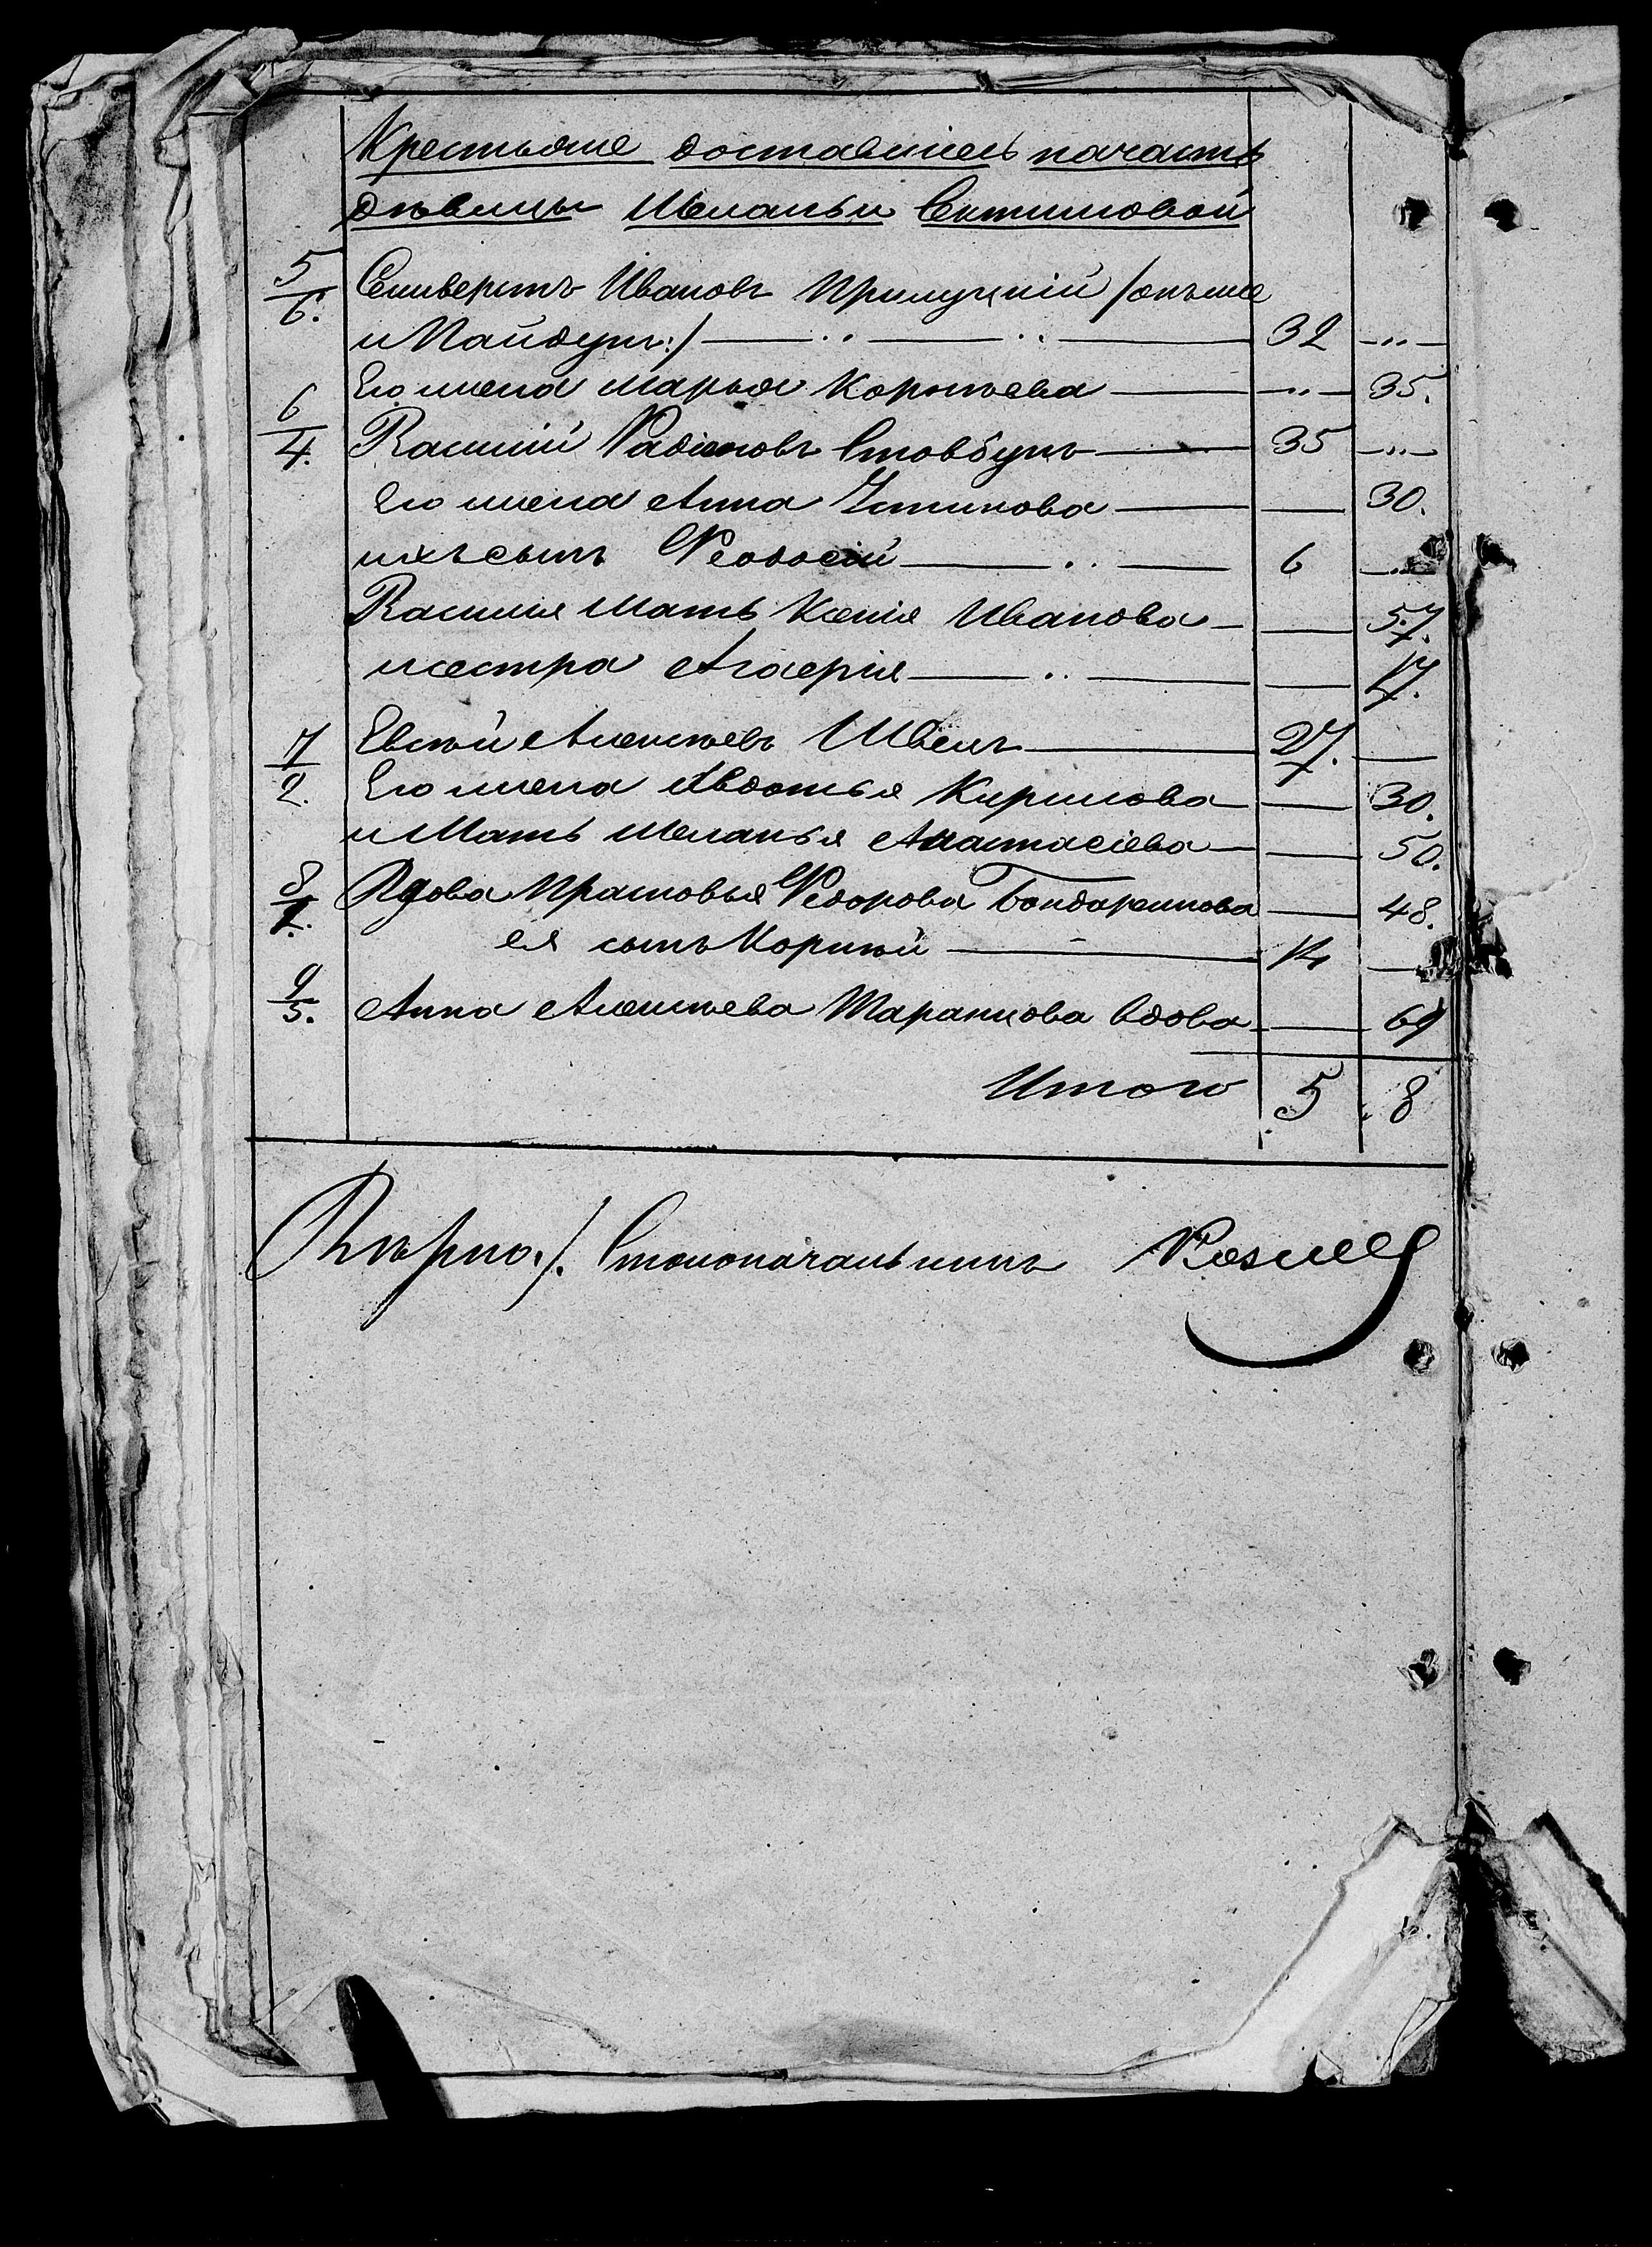 Крестьяне доставшіесь на часть
дѣвицы Меланьи Сктиловой
5/6. Селиверстъ Ивановъ Прилуцкій /онъ же
и Пайдунъ:/ — 32 —
Его жена Марья Корнѣева — — 35.
6/4. Василій Радіоновъ Стовбунъ — 35 —
Его жена Анна Устинова — — 30.
ихъ сынъ Феодосій — 6 —
Василія Мать Ксенія Иванова — — 57.
и сестра Агаерія — — 17.
7/2. Евсѣй Алексѣевъ Швецъ — 27. —
Его жена Авдотья Кирилова — — 30.
и Мать Меланья Анастасіева — — 50.
8/1. Вдова Прасковья Федорова Бондаренкова — — 48.
ея сынъ Корнѣй — 14 —
9/3. Анна Алексѣева Таранцова вдова — — 69
Итого 5 8
Вѣрно:/. Столоначальникъ